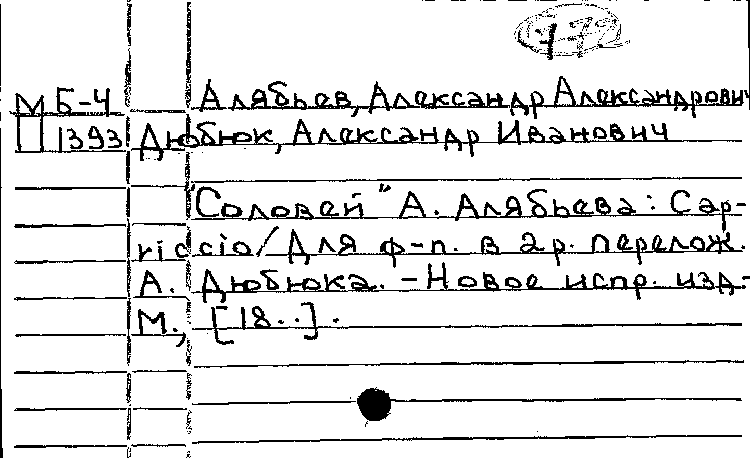 772
М Б-4 Алябьев, Александр Александрович
П 1393 Дюбюк, Александр Иванович
"Соловей" А. Алябьева: Cap-
riccio/Для ф-п. в 2 р. перелож.
А. Дюбюка. - Новое испр. изд-
М., [18..].